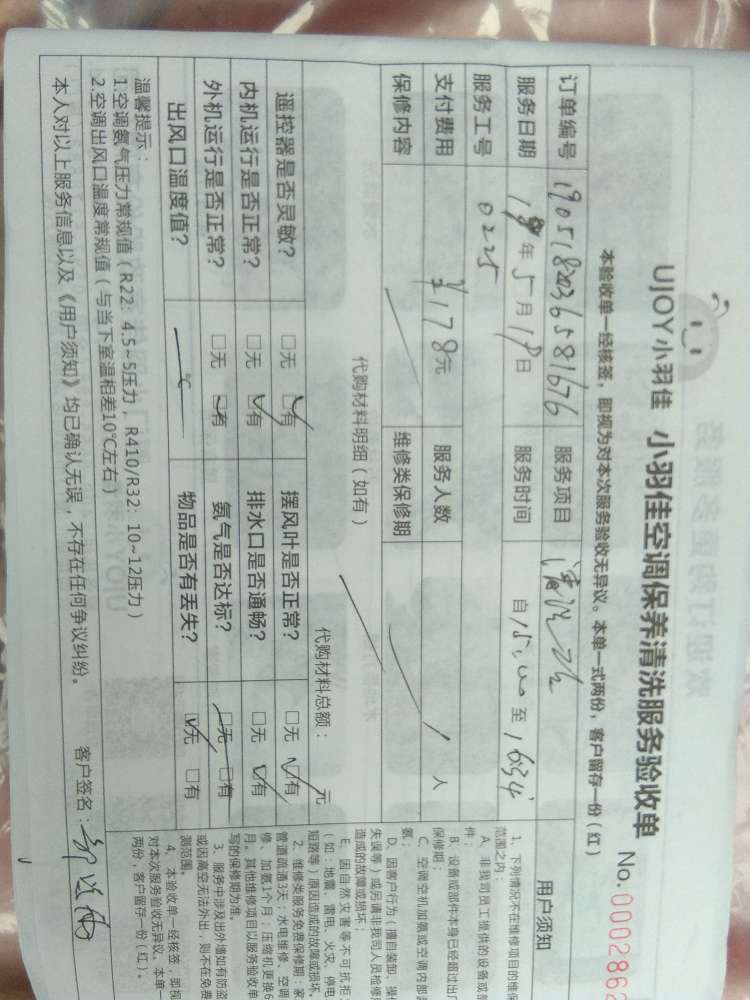 UJOY小羽佳 小羽佳空调保养清洗服务验收单 No.0002862
本验收单一经核签，即视为对本次服务验收无异议。本单一式两份，客户留存一份（红）
订单编号 1905182036581676 服务项目
服务日期 19年5月19日 服务时间 自15:00至16:34
服务工号 0225
支付费用 ¥178元 服务人数 1人
保修内容 维修类保修期
代购材料明细（如有）
代购材料总额： 元
遥控器是否灵敏？ □无 ☑有 摆风叶是否正常？ □无 ☑有
内机运行是否正常？ □无 ☑有 排水口是否通畅？ □无 ☑有
外机运行是否正常？ □无 ☑有 氨气是否达标？ □无 □有
出风口温度值？ ℃ 物品是否有丢失？ ☑无 □有
温馨提示：
1.空调氨气压力常规值（R22: 4.5~5压力，R410/R32: 10~12压力）
2.空调出风口温度常规值（与当下室温相差10℃左右）
本人对以上服务信息以及《用户须知》均已确认无误，不存在任何争议纠纷。 客户签名：
用户须知
1、下列情况不在维修项目的维保
范围之内：
A、非我司员工提供的设备或部
件；
B、设备或部件本身已经超过出厂
保修期；
C、空调空机加氨或空调内部
氨；
D、因客户行为（擅自装卸、操
失误等）或另请非我司人员检修
造成的故障或损坏；
E、因自然灾害等不可抗拒
（如：地震、雷电、火灾、停电
短路等）原因造成的故障或损坏。
2、维修类服务免费保修期：家
管道疏通3天；水电维修、空调
修、加氨1个月；压缩机更换6
月。其他维修项目以服务验收单
写的保修期为准。
3、服务中涉及出外墙如有防盗
或因高空无法外出，则不在免费
测范围。
4、本验收单一经核签，即视
对本次服务验收无异议。本单一
两份，客户留存一份（红）。